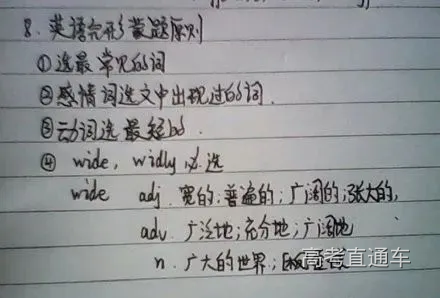 8、英语完形蒙题原则
①选最常见的词
②感情词选文中出现过的词.
③动词选最短的.
④ wide, widly 必选
wide adj. 宽的;普遍的;广阔的;张大的,
adv. 广泛地;充分地;广阔地
n. 广大的世界;
高考直通车